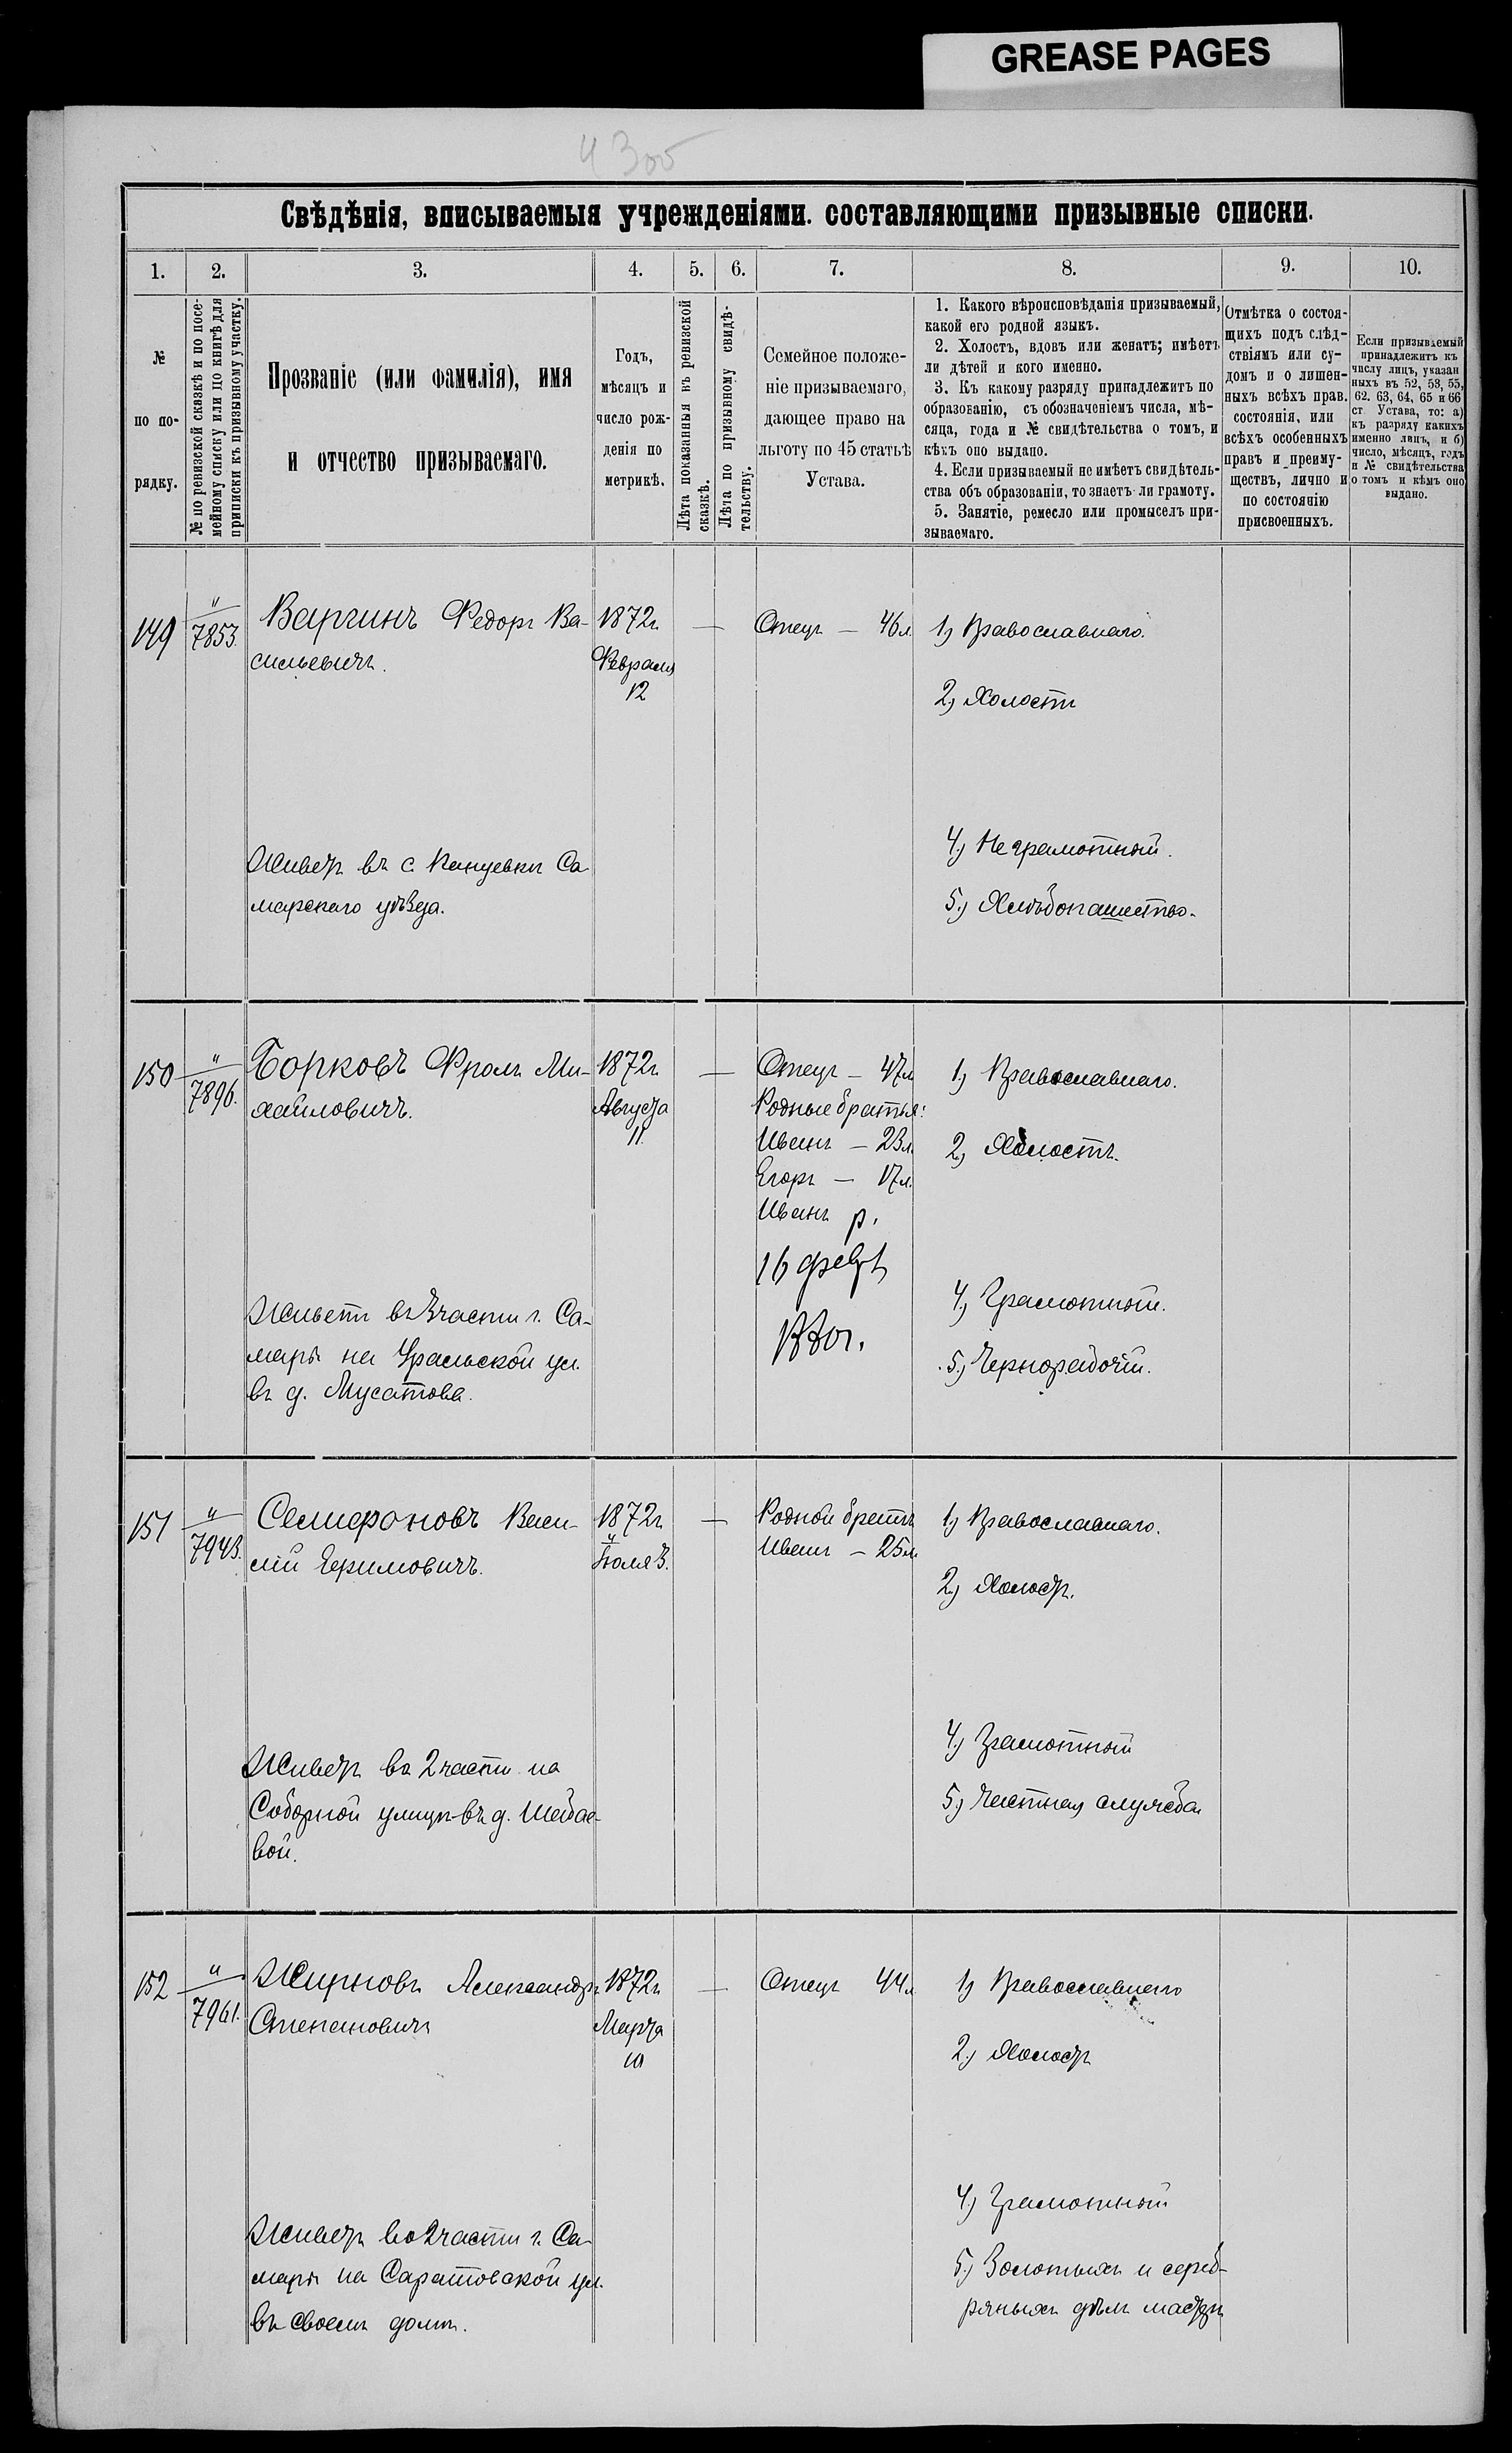 GREASE PAGES
43об
Свѣдѣнія, вписываемыя учрежденіями. составляющими призывные списки.
1. 2. 3. 4. 5. 6. 7. 8. 9. 10.
№ по по-рядку.
№ по ревизской сказкѣ и по посе-
мейному списку или по книгѣ для
приписки къ призывному участку.
Прозваніе (или фамилія), имя
и отчество призываемаго.
Годъ,
мѣсяцъ и
число рож-
денія по
метрикѣ.
Лѣта показанныя въ ревизской
сказкѣ.
Лѣта по призывному свидѣ-
тельству.
Семейное положе-
ніе призываемаго,
дающее право на
льготу по 45 статьѣ
Устава.
1. Какого вѣроисповѣданія призываемый,
какой его родной языкъ.
2. Холостъ, вдовъ или женатъ; имѣетъ
ли дѣтей и кого именно.
3. Къ какому разряду принадлежитъ по
образованію, съ обозначеніемъ числа, мѣ-
сяца, года и № свидѣтельства о томъ, и
кѣмъ оно выдано.
4. Если призываемый не имѣетъ свидѣтель-
ства объ образованіи, то знаетъ ли грамоту.
5. Занятіе, ремесло или промыселъ при-
зываемаго.
Отмѣтка о состоя-
щихъ подъ слѣд-
ствіямъ или су-
домъ и о лишен-
ныхъ всѣхъ прав.
состоянія, или
всѣхъ особенныхъ
правъ и преиму-
ществъ, лично и
по состоянію
присвоенныхъ.
Если призываемый
принадлежитъ къ
числу лицъ, указан
ныхъ въ 52, 53, 55,
62. 63, 64, 65 и 66
ст Устава, то: а)
къ разряду какихъ
именно лицъ, и б)
число, мѣсяцъ, годъ
и № свидѣтельства
о томъ и кѣмъ оно
выдано.
149 " 7853. Варгинъ Федоръ Ва- 1872г. — Отецъ — 46л. 1) Православнаго.
сильевичъ. Февраля
12
2) Холостъ
4) Неграмотный.
Живетъ въ с. Са-
марскаго уѣзда.
5.) Хлѣбопашество.
150 " 7896. Борковъ Фролъ Ми- 1872г. — Отецъ — 47л. 1) Православнаго.
хайловичъ. Августа Родные братья:
11. Иванъ — 23л. 2) Холостъ.
Егоръ — 17л.
Иванъ р.
16 февр
4) Грамотный.
Живетъ въ 3 части г. Са-
мары на Уральской ул.
въ д. Мусатова.
5.) Чернорабочій.
151 " 7943. Семифоновъ Васи- 1872г. — Родной братъ 1) Православнаго.
лій Ефимовичъ. Іюля 3. Иванъ — 25л.
2.) Холостъ.
4.) Грамотный
Живетъ во 2 части на
Соборной улицѣ въ д. Шебае-
вой.
5.) Частная служба
152 " 7961. Жирновъ Александръ 1872г. — Отецъ 44л. 1) Православнаго
Степановичъ Марта
10
2.) Холостъ
4.) Грамотный
Живетъ во 2 части г. Са-
мары на Саратовской ул.
въ своемъ домѣ.
5.) Золотыхъ и сереб-
ряныхъ дѣлъ мастеръ